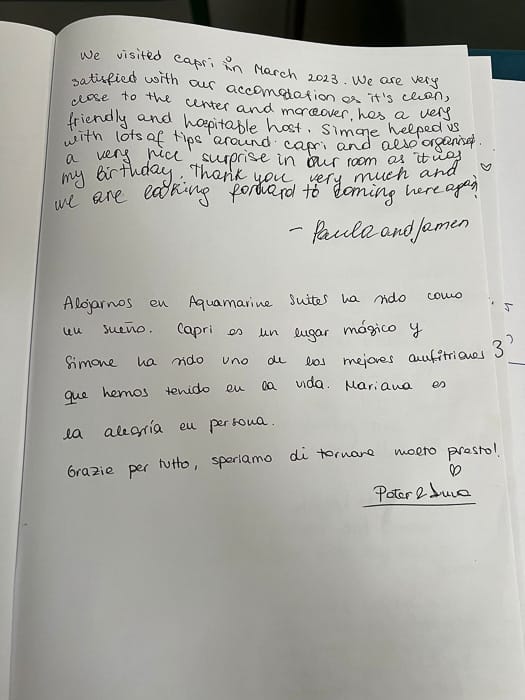 We visited Capri in March 2023. We are very
satisfied with our accomodation as it's clean,
close to the center and moreover, has a very
friendly and hospitable host. Simone helped us
with lots of tips around capri and also organised
a very nice surprise in our room as it was
my birthday. Thank you very much and
we are looking forward to coming here again ♡
- Paula and
Alojarnos en Aquamarine Suites ha sido como
un sueño. Capri es un lugar mágico y
Simone ha sido uno de los mejores anfitriones
que hemos tenido en la vida. Mariana es
la alegría en persona.
Grazie per tutto, speriamo di tornare molto presto!
♡